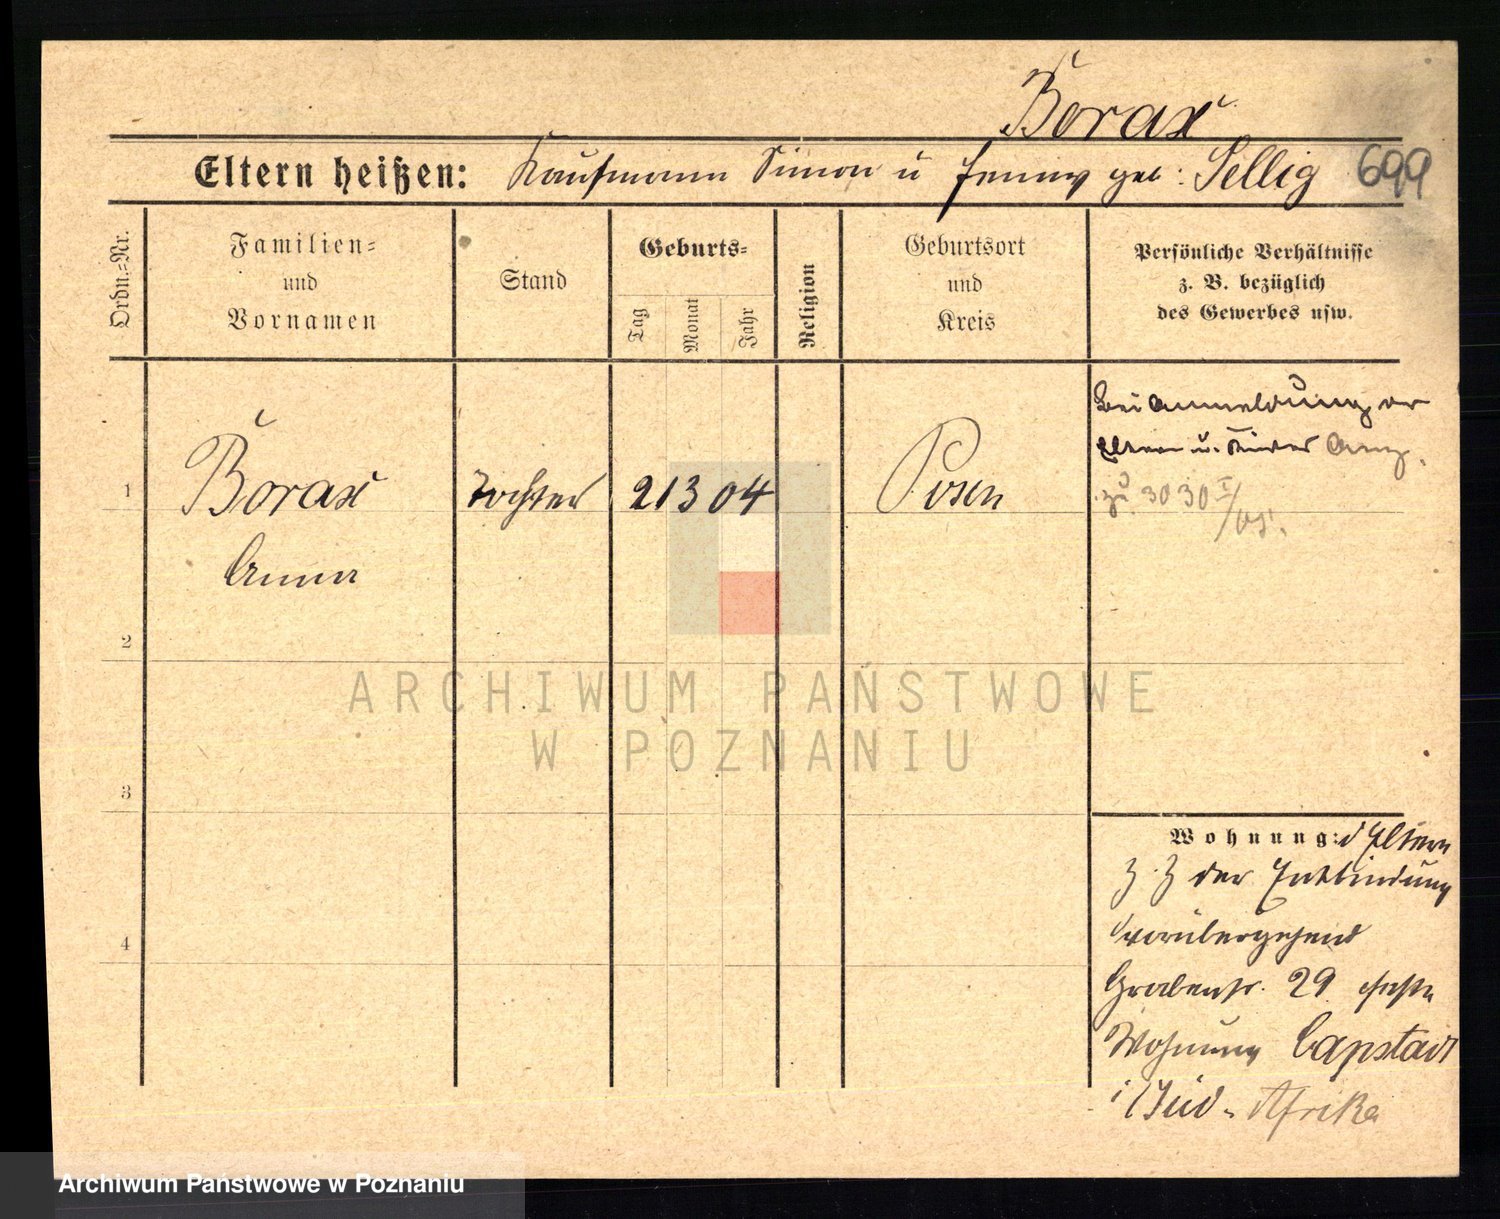 Borax
Eltern heißen: Kaufmann Simon u Jenny geb: Sellig 699
Ordn.-Nr.
Familien-
und
Vornamen
Stand
Geburts-
Tag
Monat
Jahr
Religion
Geburtsort
und
Kreis
Persönliche Verhältnisse
z. B. bezüglich
des Gewerbes usw.
1
Borax
Anna
Tochter
21 3 04
Posen
Bei Anmeldung der
Eltern u. Kinder Anz.
zu 30 30 I/05.
2
3
4
Wohnung: d Eltern
z. Z der Entbindung
vorübergehend
Grabenstr. 29. feste
Wohnung Capstadt
i Süd-Afrika
ARCHIWUM PAŃSTWOWE
W POZNANIU
Archiwum Państwowe w Poznaniu